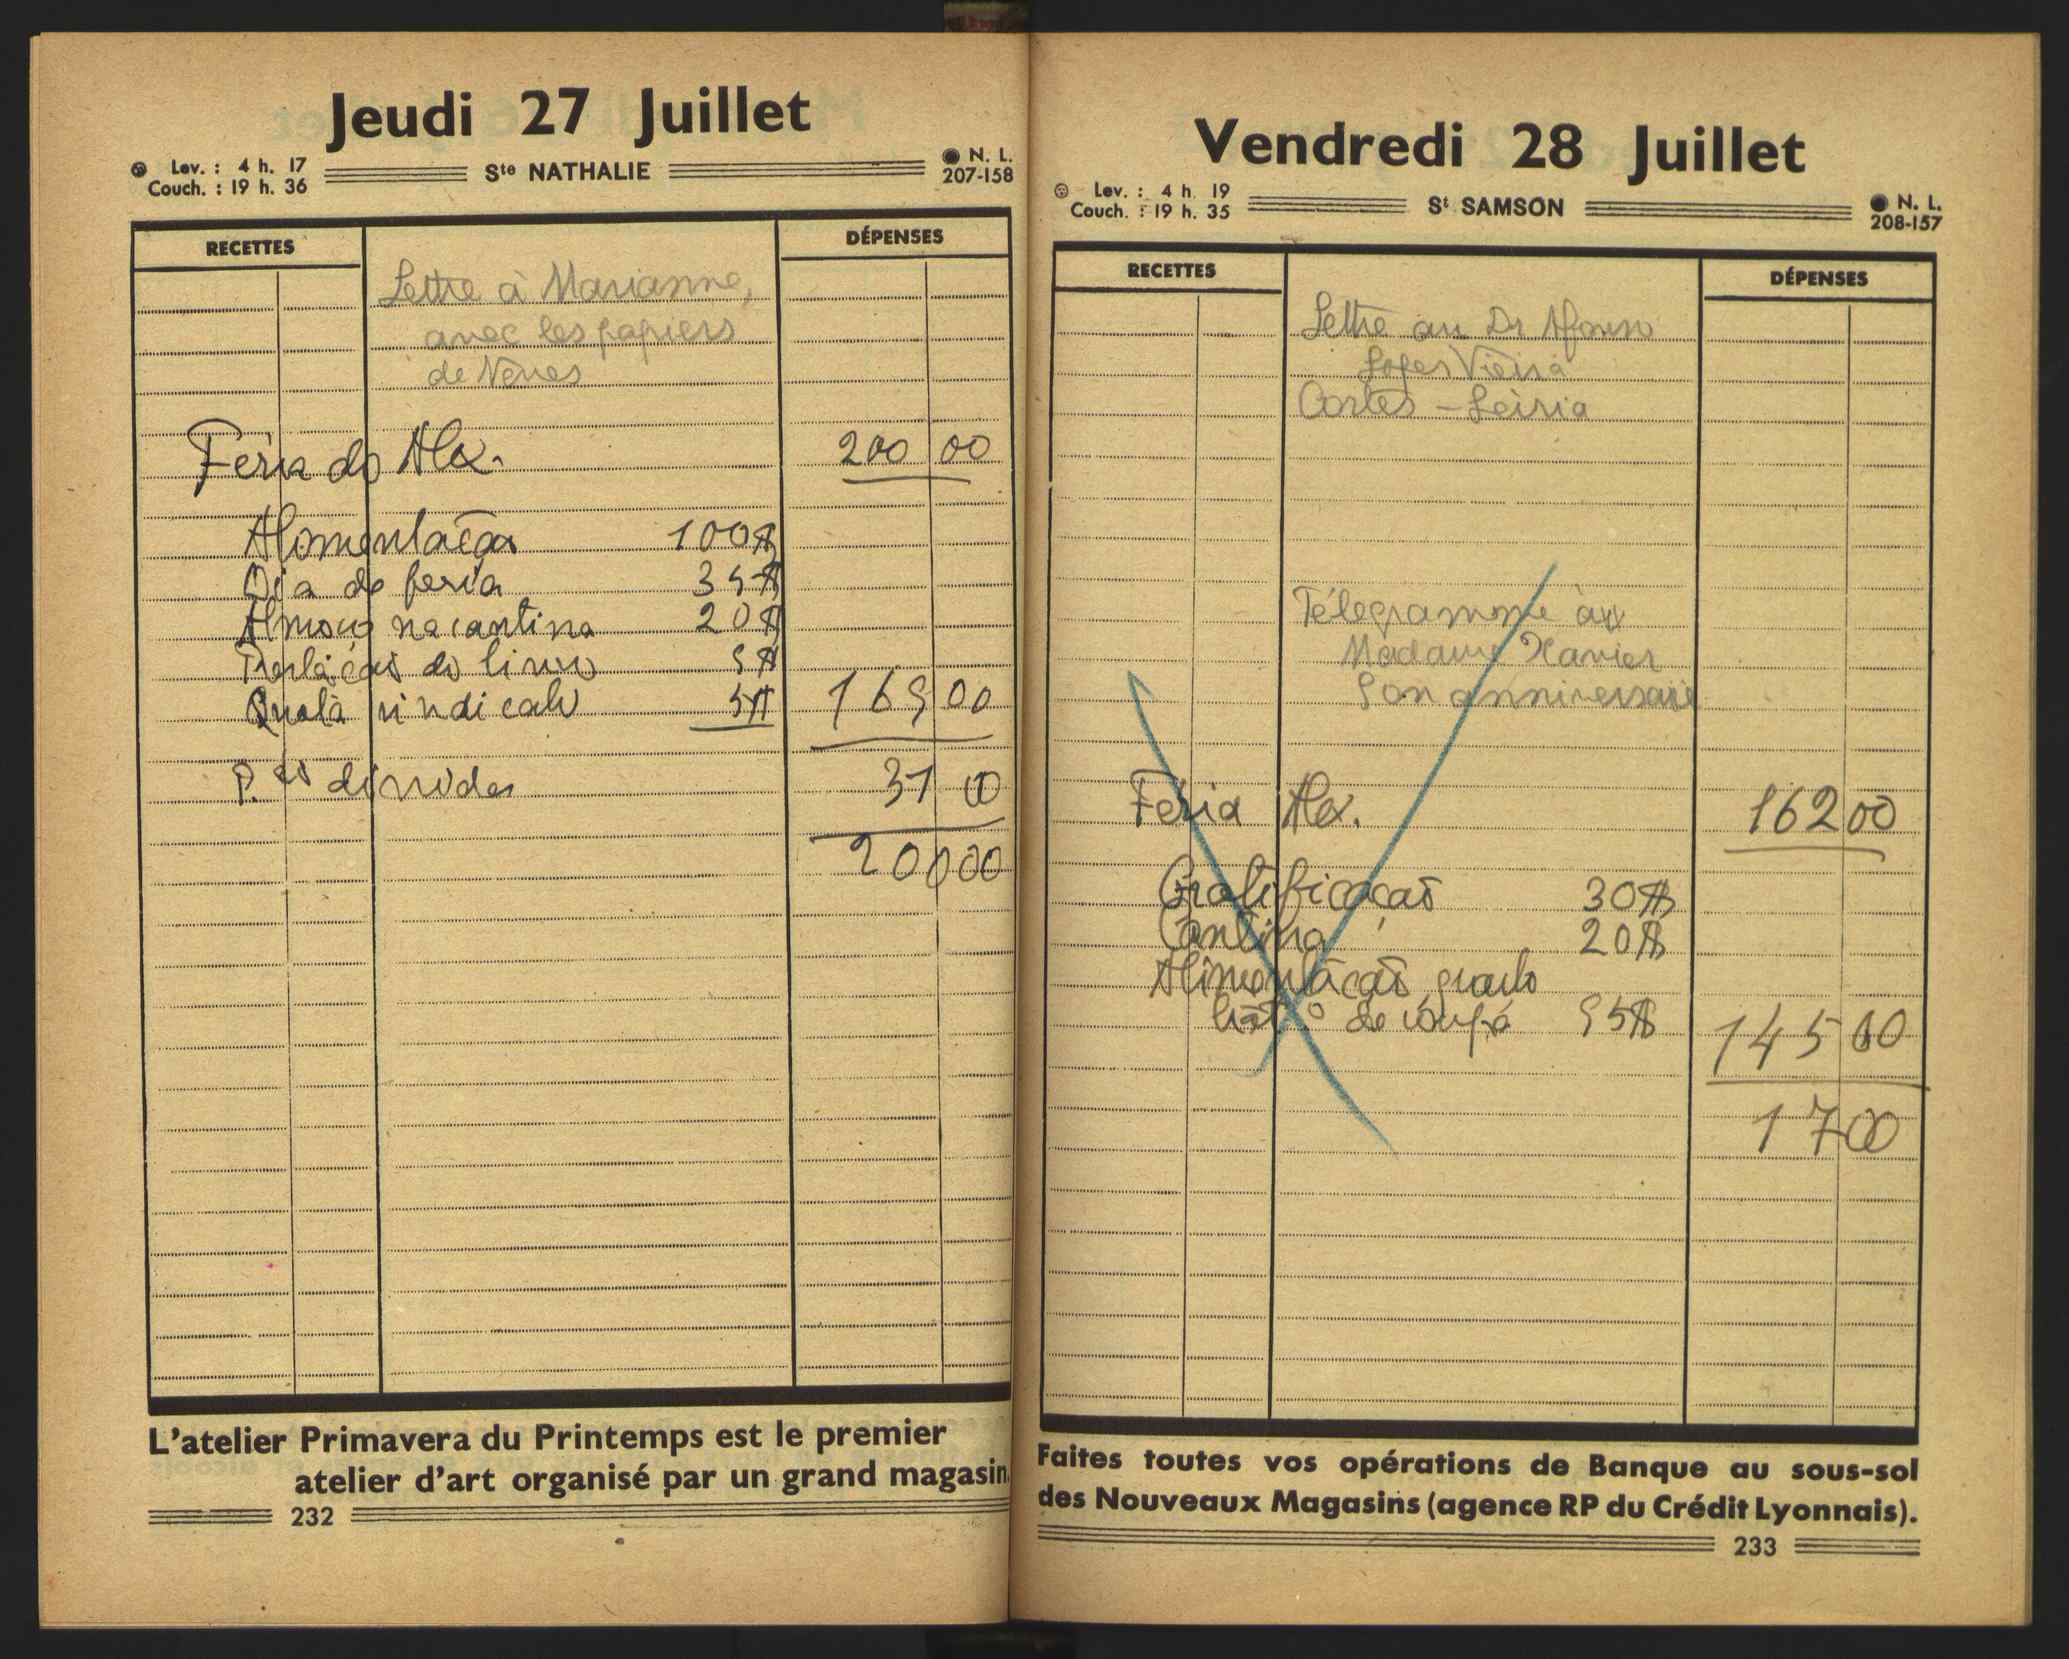 Jeudi 27 Juillet
Lev. : 4 h. 17
Couch. : 19 h. 36
Ste NATHALIE
N. L.
207-158
RECETTES
DÉPENSES
Lettre à Marianne,
avec les papiers
de Nenes
Féria do Alex. 200 00
Alimentação 100$
Dia de feria 35$
Almoço na cantina 20$
do livro 5$
Quota sindicato 5$ 165 00
P.as dívidas 31 00
200 00
L'atelier Primavera du Printemps est le premier
atelier d'art organisé par un grand magasin.
232
Vendredi 28 Juillet
Lev. : 4 h. 19
Couch. : 19 h. 35
St SAMSON
N. L.
208-157
RECETTES
DÉPENSES
Lettre au Dr Afonso
Lopes Vieira
Cortes – Leiria
Télegramme à
Madame Xavier
Son anniversaire
Féria Alex. 162 00
Gratificação 30$
Cantina 20$
Alimentação
de roupa 95$ 145 00
17 00
Faites toutes vos opérations de Banque au sous-sol
des Nouveaux Magasins (agence RP du Crédit Lyonnais).
233